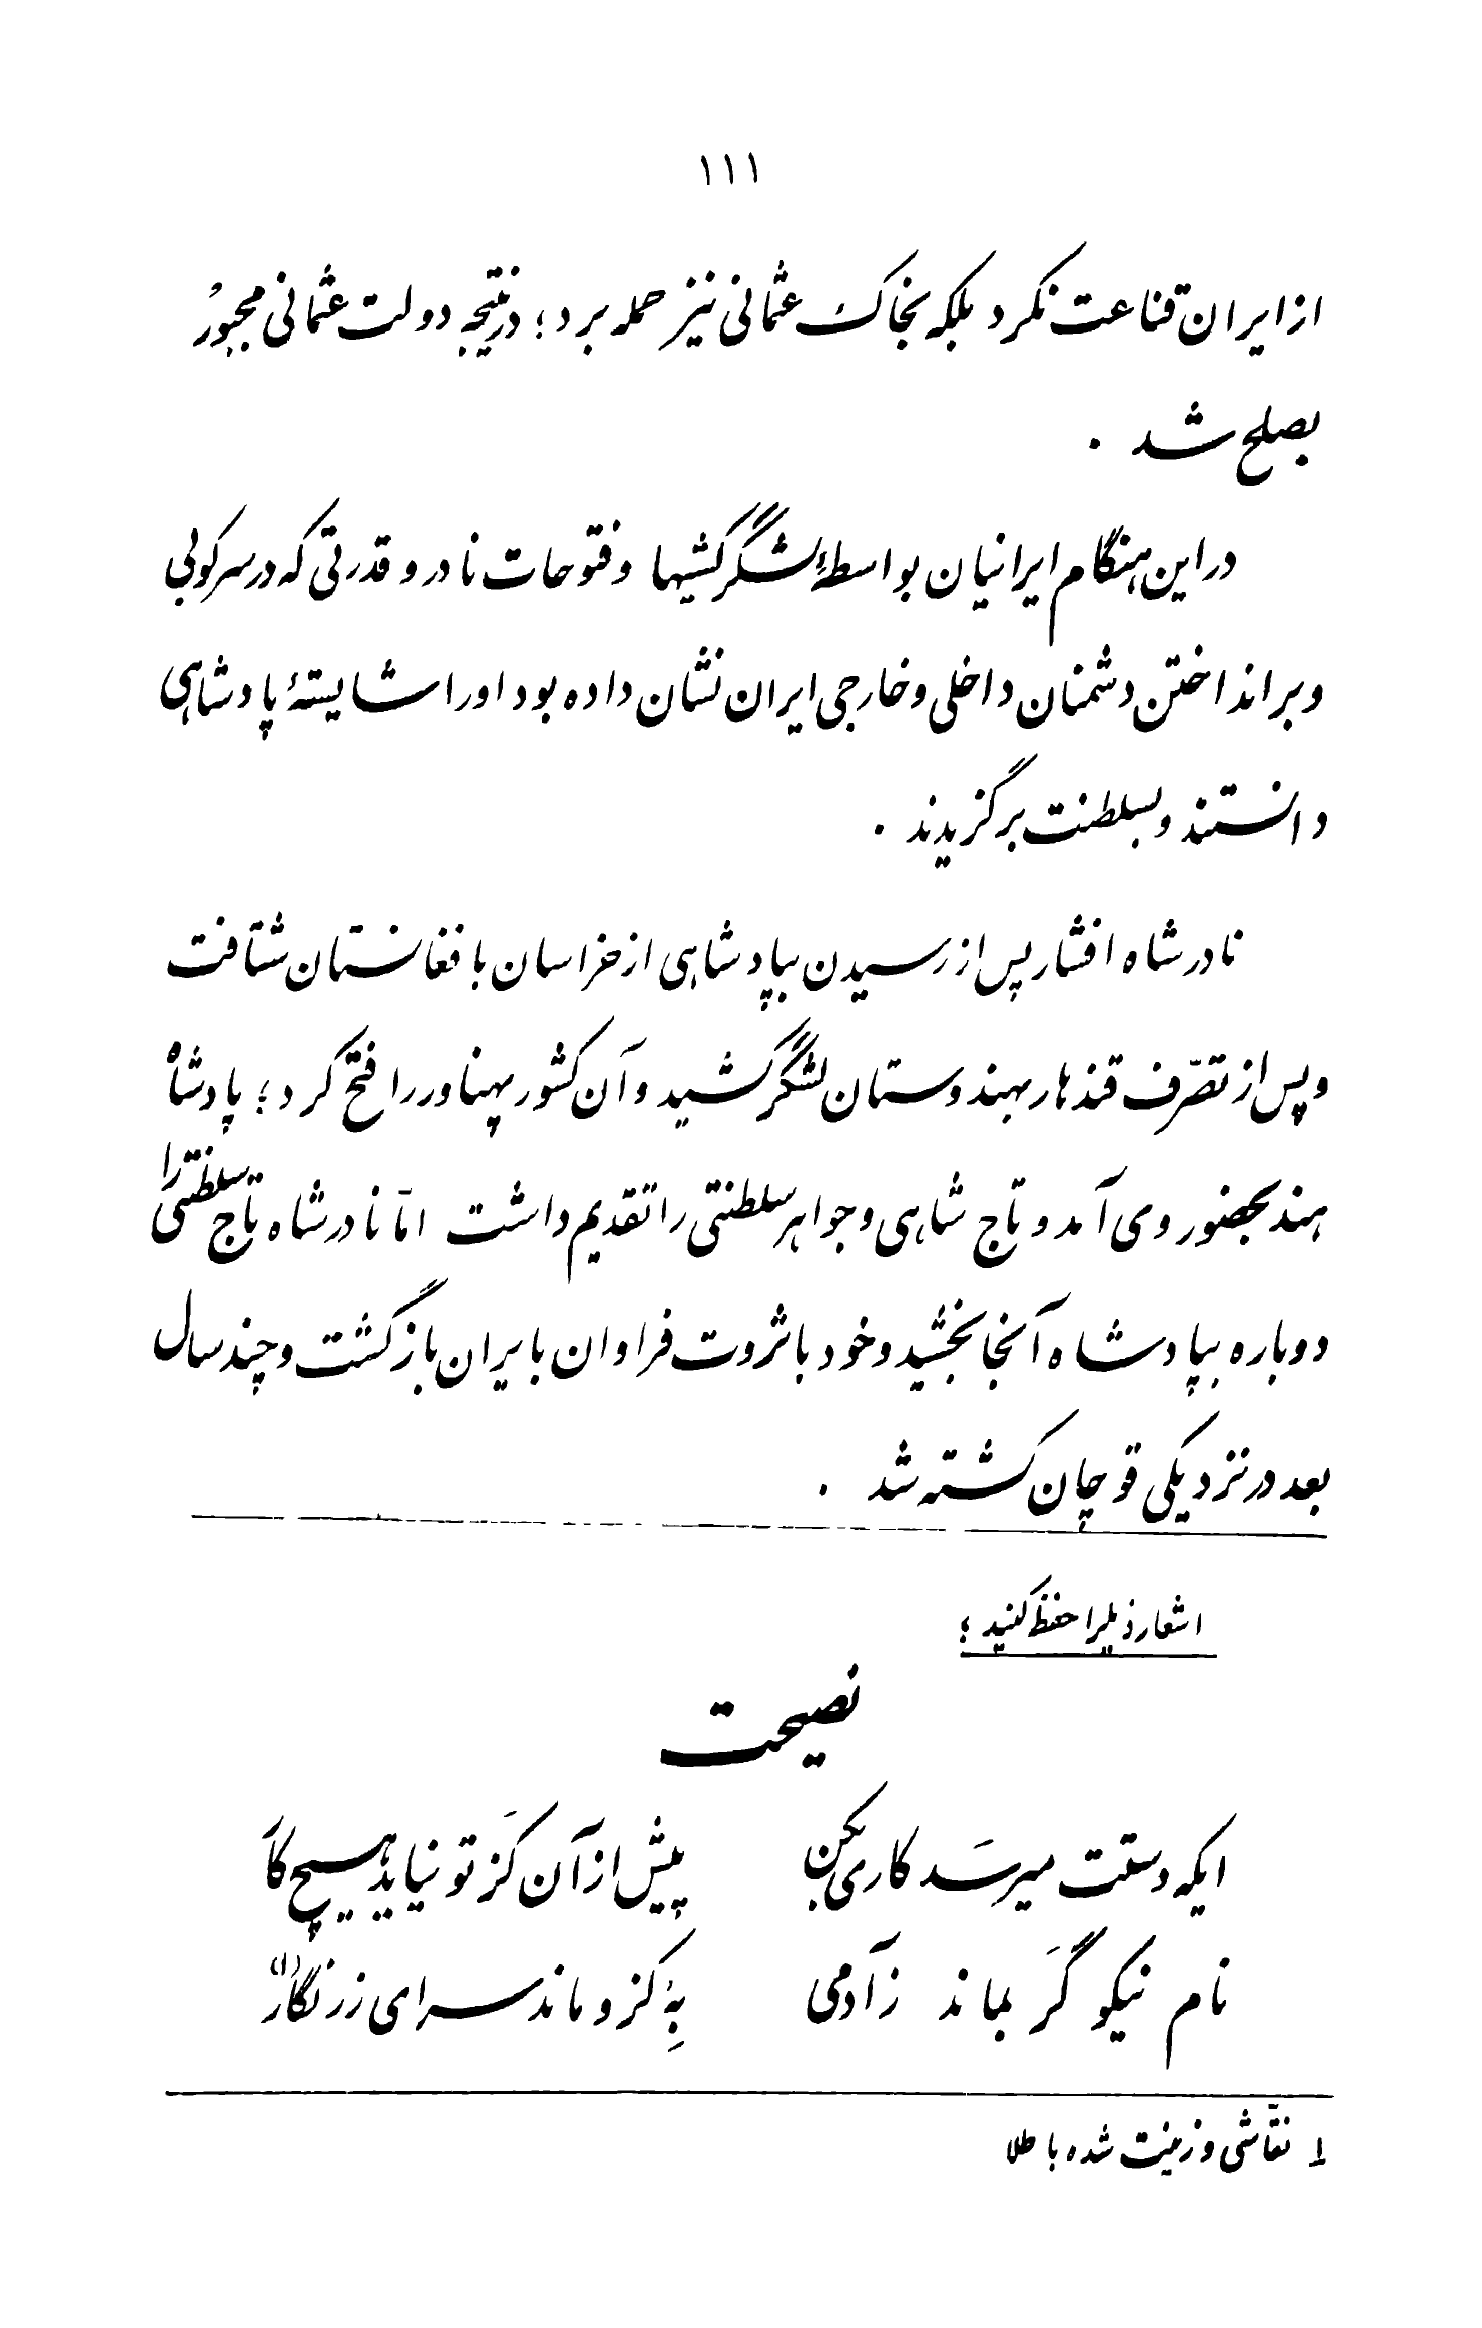 ۱۱۱
از ایران قناعت نکرد بلکه بخاک عثمانی نیز حمله برد؛ در نتیجه دولت عثمانی مجبورُ
بصلح شد .
در این هنگام ایرانیان بواسطهٔ لشگرکشیها و فتوحات نادر و قدرتی که در سرکوبی
و برانداختن دشمنان داخلی و خارجی ایران نشان داده بود او را شایستهٔ پادشاهی
دانستند و بسلطنت برگزیدند .
نادرشاه افشار پس از رسیدن بپادشاهی از خراسان بافغانستان شتافت
و پس از تصرّف قندهار بهندوستان لشگر کشید و آن کشور پهناور را فتح کرد؛ پادشاهْ
هند بحضور وی آمد و تاج شاهی و جواهر سلطنتی را تقدیم داشت امّا نادرشاه تاج سلطنتی را
دوباره بپادشاه آنجا بخشید و خود با ثروت فراوان بایران بازگشت و چند سال
بعد در نزدیکی قوچان کشته شد .
اشعار ذیلرا حفظ کنید ؛
نصیحت
ایکه دستت میرسَد کاری بکن پیش از آن کَز تو نیاید هیچ کار
نام نیکو گَر بماند زآدمی بِهْ کزو ماند سرای زرنگار (۱)
۱ نقّاشی و زینت شده با طلا